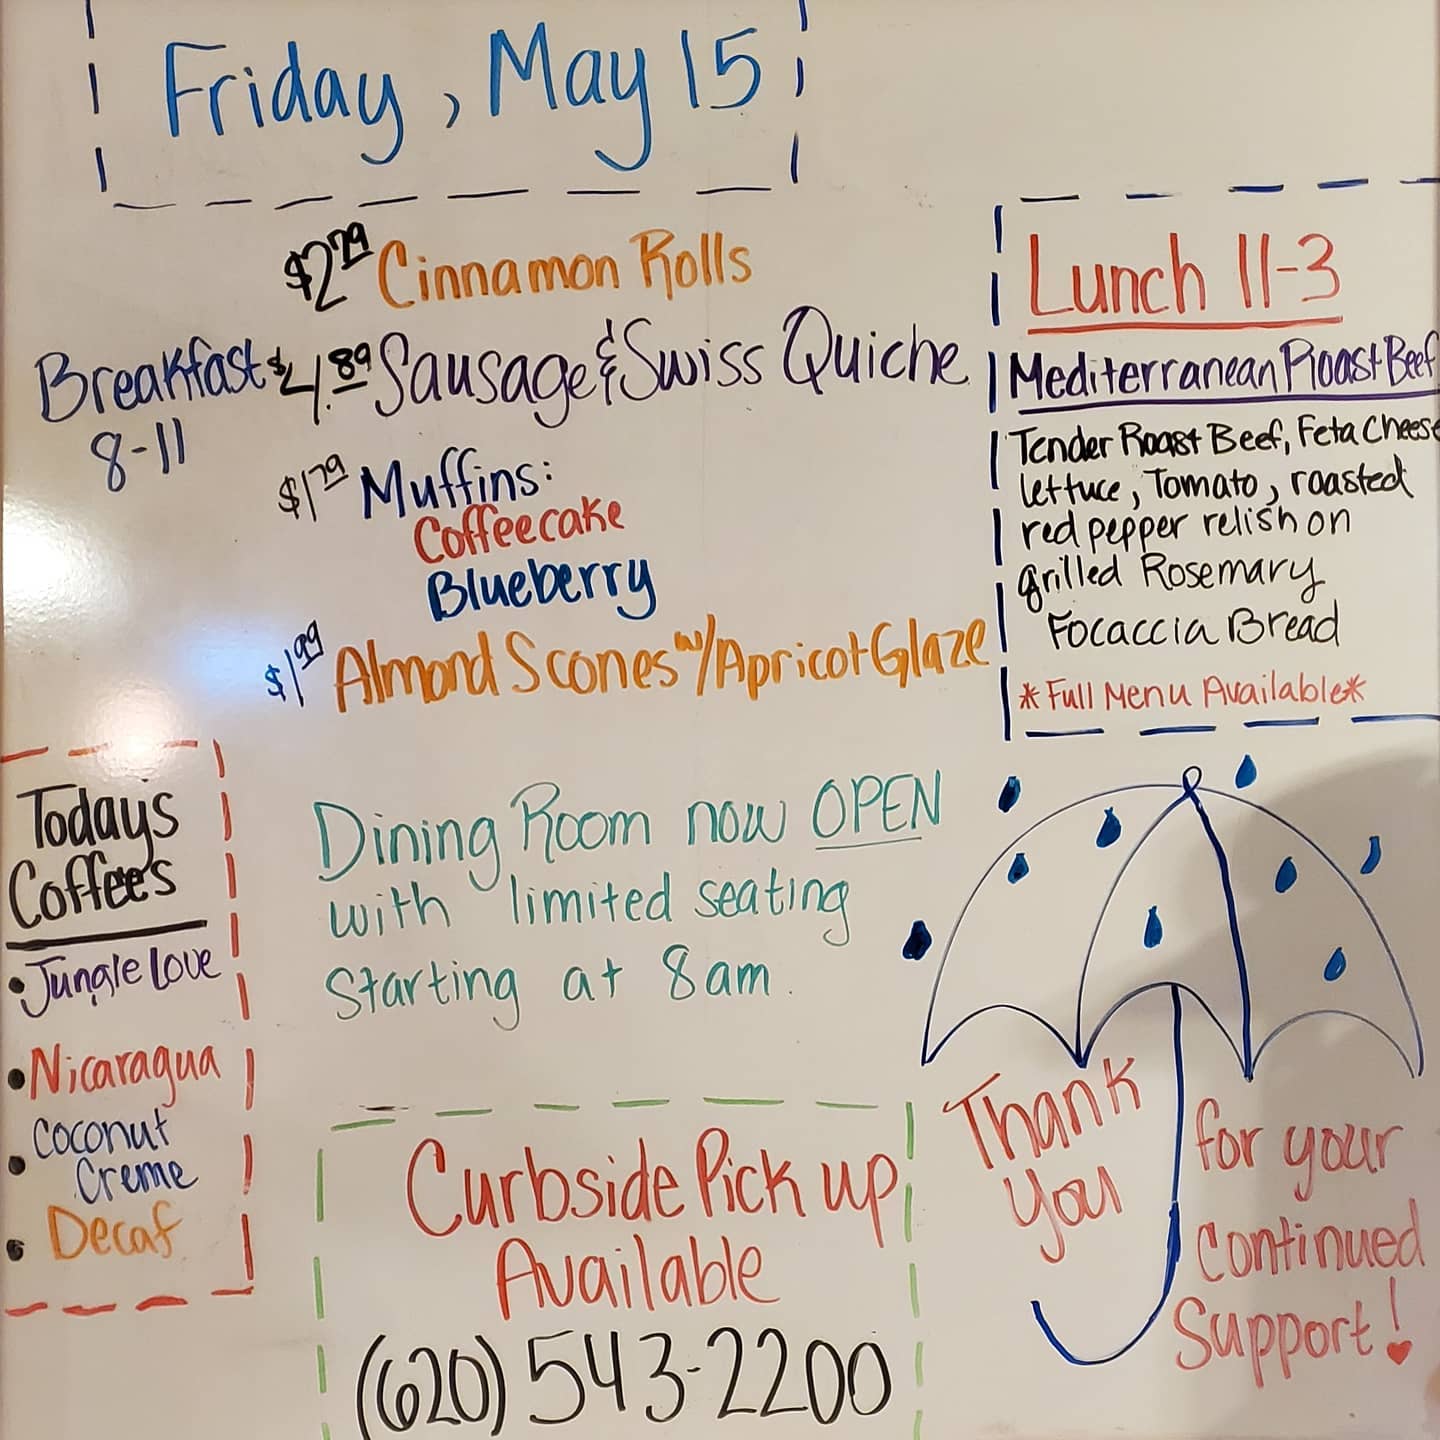 Friday, May 15
$2.79 Cinnamon Rolls
Breakfast
8-11
$4.89 Sausage & Swiss Quiche
$1.79 Muffins:
Coffeecake
Blueberry
$1.99 Almond Scones w/Apricot Glaze
Lunch 11-3
Mediterranean Roast Beef
Tender Roast Beef, Feta Cheese
lettuce, Tomato, roasted
red pepper relish on
grilled Rosemary
Focaccia Bread
*Full Menu Available*
Todays
Coffee's
•Jungle Love
•Nicaragua
•Coconut
Creme
•Decaf
Dining Room now OPEN
with limited seating
Starting at 8am.
Curbside Pick up
Available
(620) 543-2200
Thank
you
for your
Continued
Support!